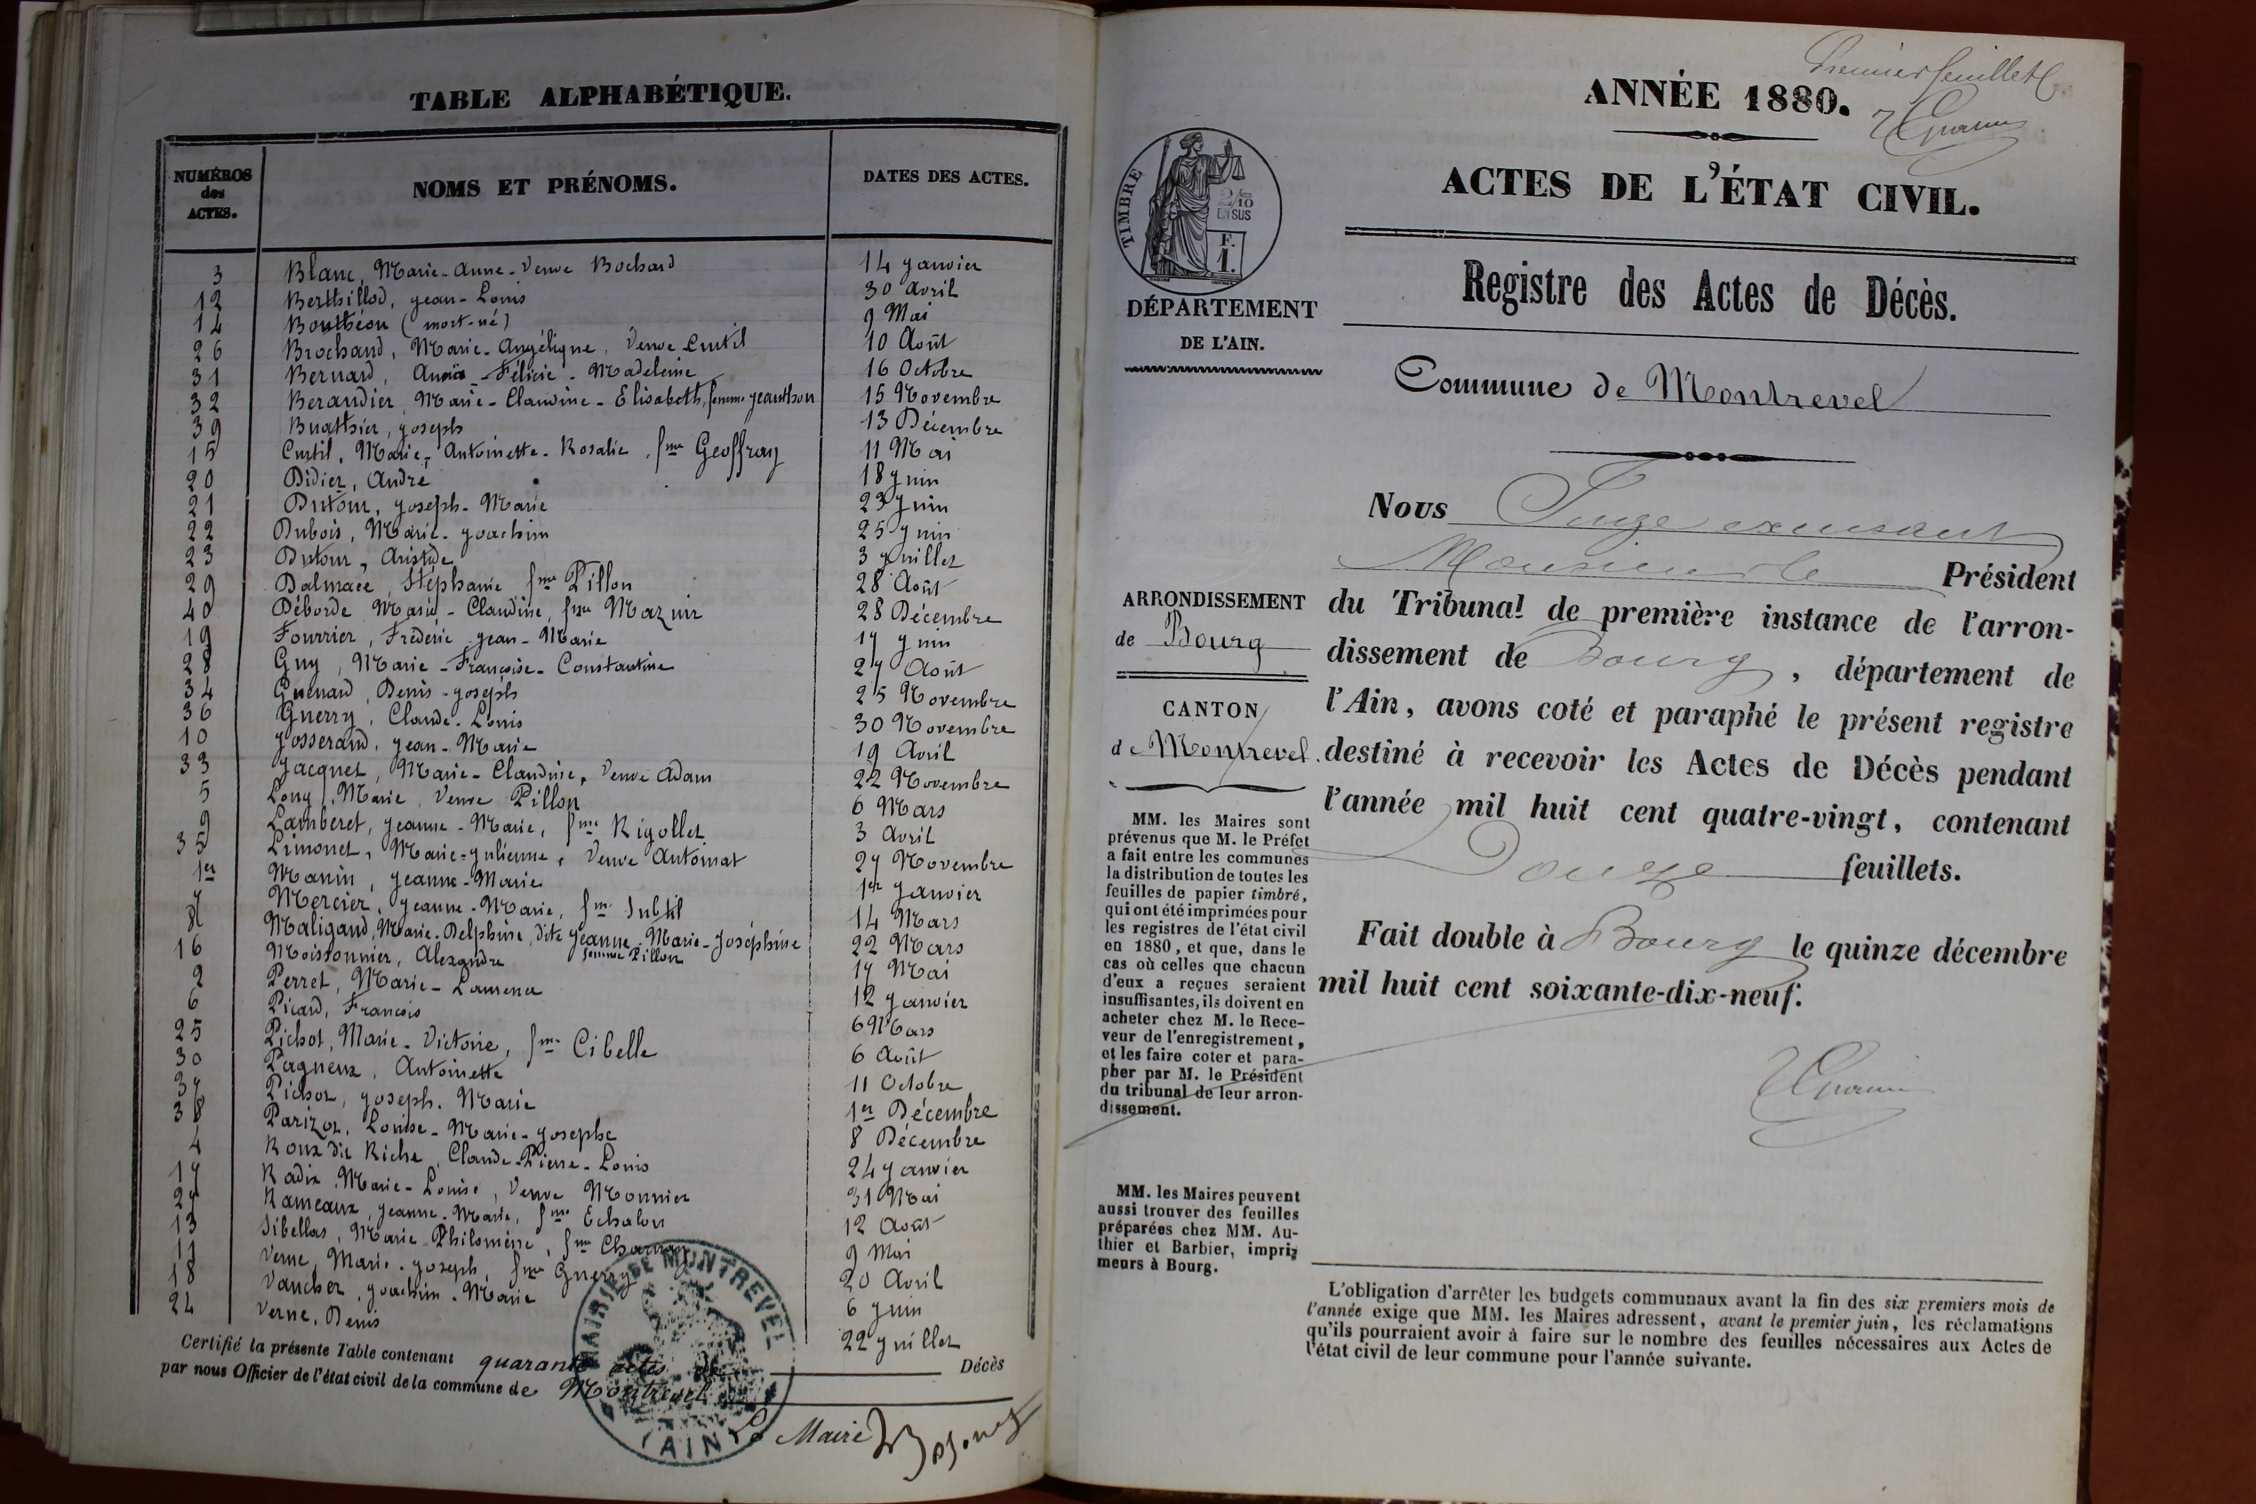 TABLE ALPHABÉTIQUE.
NUMÉROS des ACTES. NOMS ET PRÉNOMS. DATES DES ACTES.
3 Blanc, Marie-Anne-Veuve Bochard 14 Janvier
12 Berthillod, Jean-Louis 30 Avril
14 Bouthéon (mort-né) 9 Mai
26 Brochand, Marie-Angélique, Veuve Curtil 10 Août
31 Bernard, Anaïs-Félicie-Madeleine 16 Octobre
32 Beraudier, Marie-Claudine-Elisabeth, femme Jeanthon 15 Novembre
39 Buathier, Joseph 13 Décembre
15 Curtil, Marie-Antoinette-Rosalie, fme Geoffray 11 Mai
20 Didier, André 18 Juin
21 Dutour, Joseph-Marie 23 Juin
22 Dubois, Marie-Joachim 25 Juin
23 Dutour, Aristide 3 Juillet
29 Dalmace, Stéphanie fme Pillon 28 Août
40 Déborde Marie-Claudine, fme Mazuir 28 Décembre
19 Fourrier, Frédéric Jean-Marie 17 Juin
28 Guy, Marie-Françoise-Constantine 27 Août
34 Guenard, Denis-Joseph 25 Novembre
36 Guerry, Claude-Louis 30 Novembre
10 Josserand, Jean-Marie 19 Avril
33 Jacquet, Marie-Claudine, Veuve Adam 22 Novembre
5 Long, Marie, Veuve Pillon 6 Mars
9 Lamberet, Jeanne-Marie, fme Rigollet 3 Avril
35 Limonet, Marie-Julienne, Veuve Antoinat 27 Novembre
1er Manin, Jeanne-Marie 1er Janvier
7 Mercier, Jeanne-Marie, fme Subtil 14 Mars
8 Maligand, Marie-Delphine, dite Jeanne-Marie-Joséphine femme Pillon 22 Mars
16 Moissonnier, Alexandre 17 Mai
2 Perret, Marie-Laurence 12 Janvier
6 Picard, François 6 Mars
25 Pichot, Marie-Victoire, fme Cibelle 6 Août
30 Pagneux, Antoinette 11 Octobre
37 Pichot, Joseph-Marie 1er Décembre
38 Parizot, Louise-Marie-Josephe 8 Décembre
4 Roux dit Riche, Claude-Pierre-Louis 24 Janvier
17 Radix Marie-Louise, Veuve Monnier 31 Mai
27 Rameaux, Jeanne-Marie, fme Echalon 12 Août
13 Sibellas, Marie-Philomène, fme Charnay 9 Mai
11 Verne, Marie-Joseph, fme Guerry 20 Avril
18 Vaucher, Joachim-Marie 6 Juin
24 Verne, Denis 22 Juillet
Certifié la présente Table contenant quarante actes de Décès
par nous Officier de l'état civil de la commune de Montrevel
MAIRIE DE MONTREVEL
(AIN)
Le Maire
Premier feuillet
ANNÉE 1880.
ACTES DE L'ÉTAT CIVIL.
TIMBRE
2/10
EN SUS
F.
1.
DÉPARTEMENT
DE L'AIN.
Registre des Actes de Décès.
Commune de Montrevel
ARRONDISSEMENT
de Bourg
CANTON
de Montrevel.
MM. les Maires sont
prévenus que M. le Préfet
a fait entre les communes
la distribution de toutes les
feuilles de papier timbré,
qui ont été imprimées pour
les registres de l'état civil
en 1880, et que, dans le
cas où celles que chacun
d'eux a reçues seraient
insuffisantes, ils doivent en
acheter chez M. le Rece-
veur de l'enregistrement,
et les faire coter et para-
pher par M. le Président
du tribunal de leur arron-
dissement.
MM. les Maires peuvent
aussi trouver des feuilles
préparées chez MM. Au-
thier et Barbier, impri-
meurs à Bourg.
Nous Juge excusant
Monsieur le Président
du Tribunal de première instance de l'arron-
dissement de Bourg, département de
l'Ain, avons coté et paraphé le présent registre
destiné à recevoir les Actes de Décès pendant
l'année mil huit cent quatre-vingt, contenant
Douze feuillets.
Fait double à Bourg le quinze décembre
mil huit cent soixante-dix-neuf.
L'obligation d'arrêter les budgets communaux avant la fin des six premiers mois de
l'année exige que MM. les Maires adressent, avant le premier juin, les réclamations
qu'ils pourraient avoir à faire sur le nombre des feuilles nécessaires aux Actes de
l'état civil de leur commune pour l'année suivante.